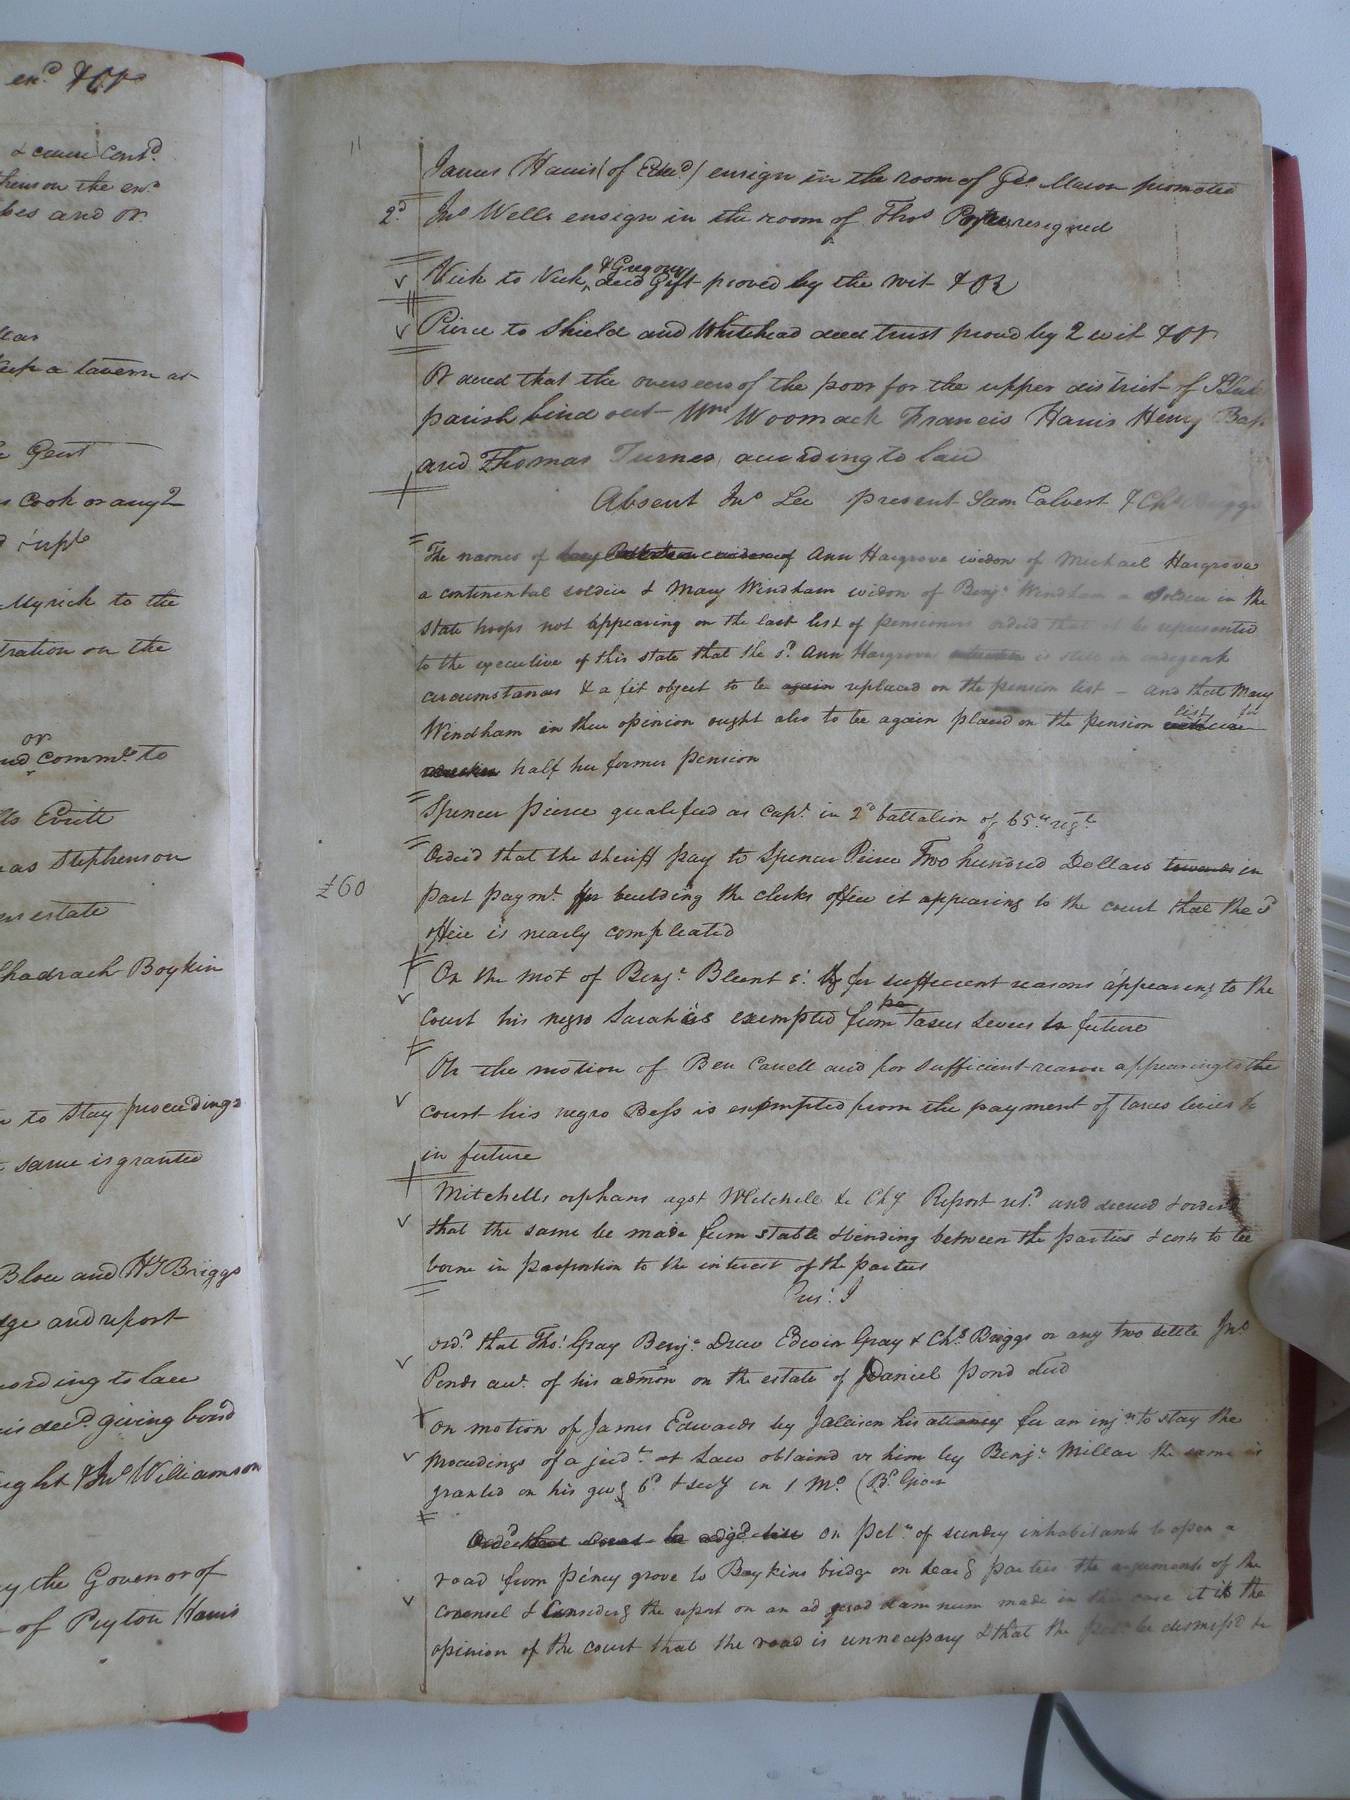 en.d & OR
& cause Cont.d
bes and or
keep a tavern at
Gent
Cook or any 2
Myrick to the
tration on the
or
and comm.r to
Evritt
as Stephenson
estate
Shadrach Boykin
to stay proceedings
same is granted
Blow and H T Briggs
and report
according to law
dec.d giving bond
& Jn.o Williamson
by the Govenor of
of Peyton Harris
11
James Harris (of Edw.d) ensign in the room of Geo. Mason promoted
2.d Jn.o Wells ensign in the room of Tho.s resigned
& Gregory
Vick to Vick, deed Gift proved by the wit & OR
Pierce to Shield and Whitehead deed trust proved by 2 wit & OR
Ordered that the overseers of the poor for the upper district of St Luke
parish bind out Wm Woomack Francis Harris Henry
and Thomas Turner according to law
Absent Jn.o Lee present Sam Calvert & Ch.s Briggs
The names of Ann Hargrove widow of Michael Hargrove
a continental soldier & Mary Windham widow of Benj.n Windham a soldier in the
state troops not appearing on the last list of pensioners orderd that it be represented
to the executive of this state that the s.d Ann Hargrove is still in indegent
circumstances & a fit object to be again replaced on the pension list – and that Mary
Windham in their opinion ought also to be again placed on the pension list
half her former pension
Spencer Pierce qualified as Cap.t in 2.d battalion of 65.th reg.t
£60
Orderd that the sheriff pay to Spencer Pierce Two hundred Dollars towards in
part paym.t for building the clerks office it appearing to the court that the s.d
office is nearly compleated
On the mot of Benj.n Blunt for sufficient reasons appearing to the
Court his negro Sarah is exempted from taxes Levies in future
On the motion of Ben and for sufficient reason appearing to the
court his negro Bess is exempted from the payment of taxes levies &c
in future
Mitchells orphans agst Mitchell In Chy Report ret.d and decreed & orderd
that the same be made firm stable & binding between the parties & costs to be
borne in proportion to the interest of the parties
Ord.d that Tho.s Gray Benj.n Drew Edwin Gray & Ch.s Briggs or any two settle Jn.o
Ponds acc.t of his admon on the estate of Daniel Pond decd
On motion of James Edwards by his attorney for an inj.n to stay the
proceedings of a jud.t at Law obtaind vs him by Benj.n Millar the same is
granted on his giv.g b.d & sec.y in 1 Mo.
Orderd that On pet.n of sundry inhabitants to open a
road from piney grove to Boykins bridge on hear.g parties the arguments of the
Counsel & Consider.g the report on an ad quod damnum made in this case it is the
opinion of the court that the road is unnecessary & that the be dismiss'd &c